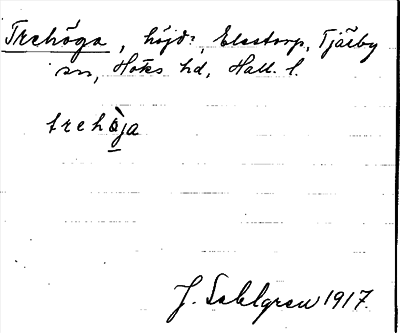 Trehöga, höjd:, Elestorp, Tjärby
sn, Höks hd, Hall. l.
trehöja
J. Sahlgren 1917.